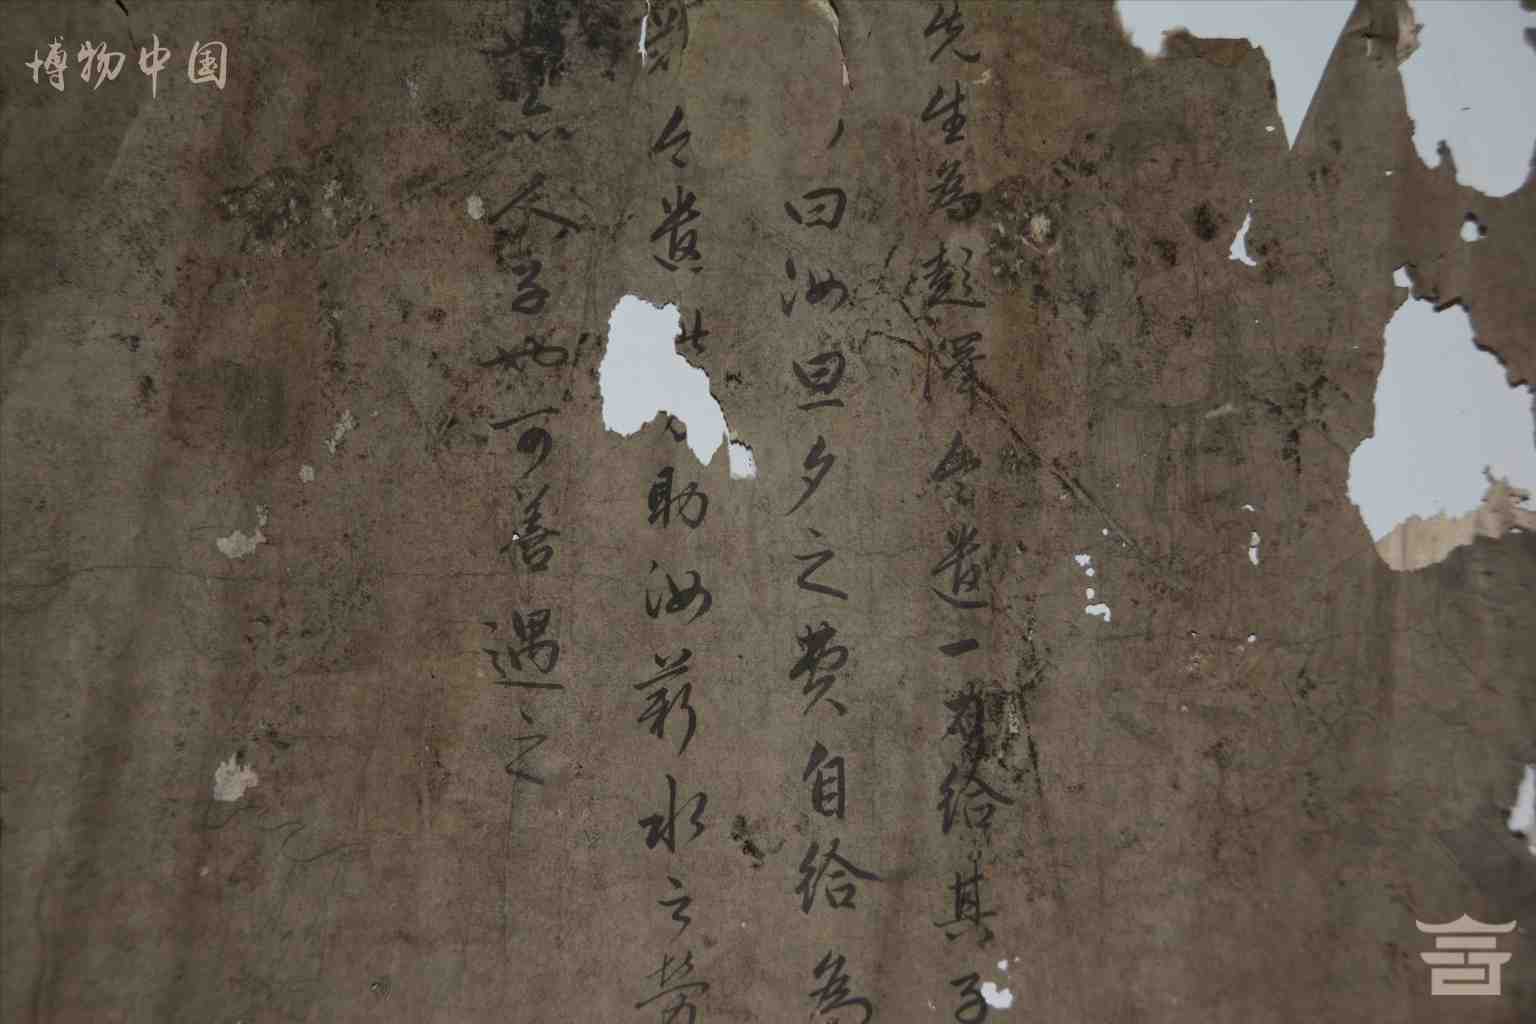 博物中国
先生為彭澤令遣一力給其子
曰汝旦夕之費自給為
難今遣此力助汝薪水之勞
此亦人子也可善遇之